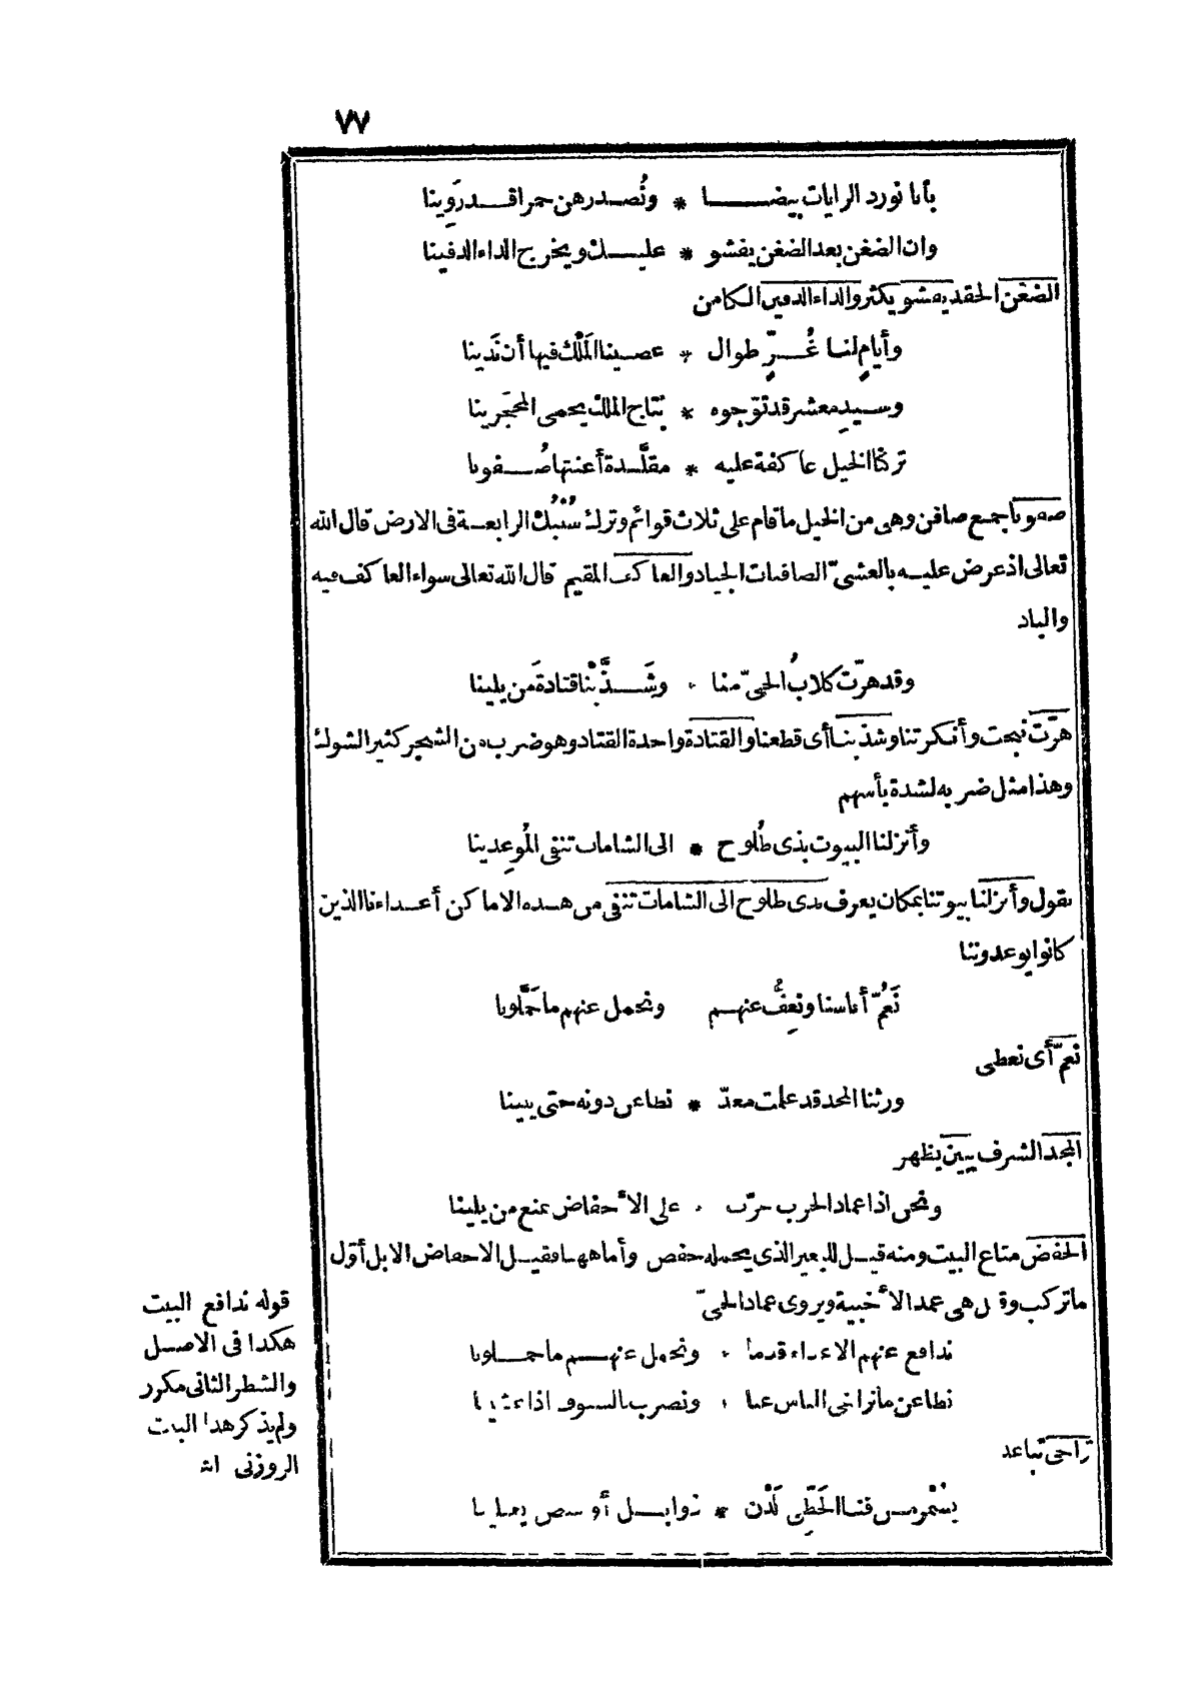 ٧٧
بأنا نورد الرايات بيضا * ونُصدرهن حمرا قد رَوِينا
وان الضغن بعد الضغن يفشو * عليك ويخرج الداء الدفينا
الضغن الحقد يفشو يكثر والداء الدفين الكامن
وأيامٍ لنا غُرٍّ طوال * عصينا المَلْك فيها أن نَدينا
وسيدِ معشر قد توّجوه * بتاج الملك يحمى المحجَرينا
تركنا الخيل عاكفة عليه * مقلَّدة أعنتها صُفونا
صفونا جمع صافن وهى من الخيل ما قام على ثلاث قوائم وترك سُنْبُك الرابعة فى الارض قال الله
تعالى اذ عرض عليه بالعشىّ الصافنات الجياد والعاكف المقيم قال الله تعالى سواء العاكف فيه
والباد
وقد هرّت كلابُ الحىّ منا * وشَذَّبْنا قتادةَ مَن يلينا
هرّت نبحت وأنكرتنا وشذبنا أى قطعنا والقتادة واحدة القتاد وهو ضرب من الشجر كثير الشوك
وهذا مثل ضربه لشدة بأسهم
وأنزلنا البيوت بذى طُلوح * الى الشامات تنفى المُوعِدينا
يقول وأنزلنا بيوتنا بمكان يعرف بذى طلوح الى الشامات تنفى من هذه الاماكن أعداءنا الذين
كانوا يوعدوننا
نَعُمّ أناسنا ونَعِفُّ عنهم ونحمل عنهم ما حَمَّلونا
نعمّ أى نعطى
ورثنا المجد قد علمت معدّ * نطاعن دونه حتى يبينا
المجد الشرف يبين يظهر
ونحن اذا عماد الحرب خرّت * على الأحفاض نمنع من يلينا
الحفض متاع البيت ومنه قيل للبعير الذى يحمله حفض وأما ههنا فقيل الاحفاض الابل أوّل
ما تركب وقيل هى عمد الأخبية ويروى عماد الحىّ
ندافع عنهم الاعداء قدما * ونحمل عنهم ما حملونا
نطاعن ما تراخى الناس عنا * ونضرب بالسيوف اذا غشينا
تراخى تباعد
بسُمْر من قنا الخَطِّى لَدْن * ذوابل أو ببيض يعتلينا
قوله ندافع البيت
هكذا فى الاصل
والشطر الثانى مكرر
ولم يذكر هذا البيت
الزوزنى اه